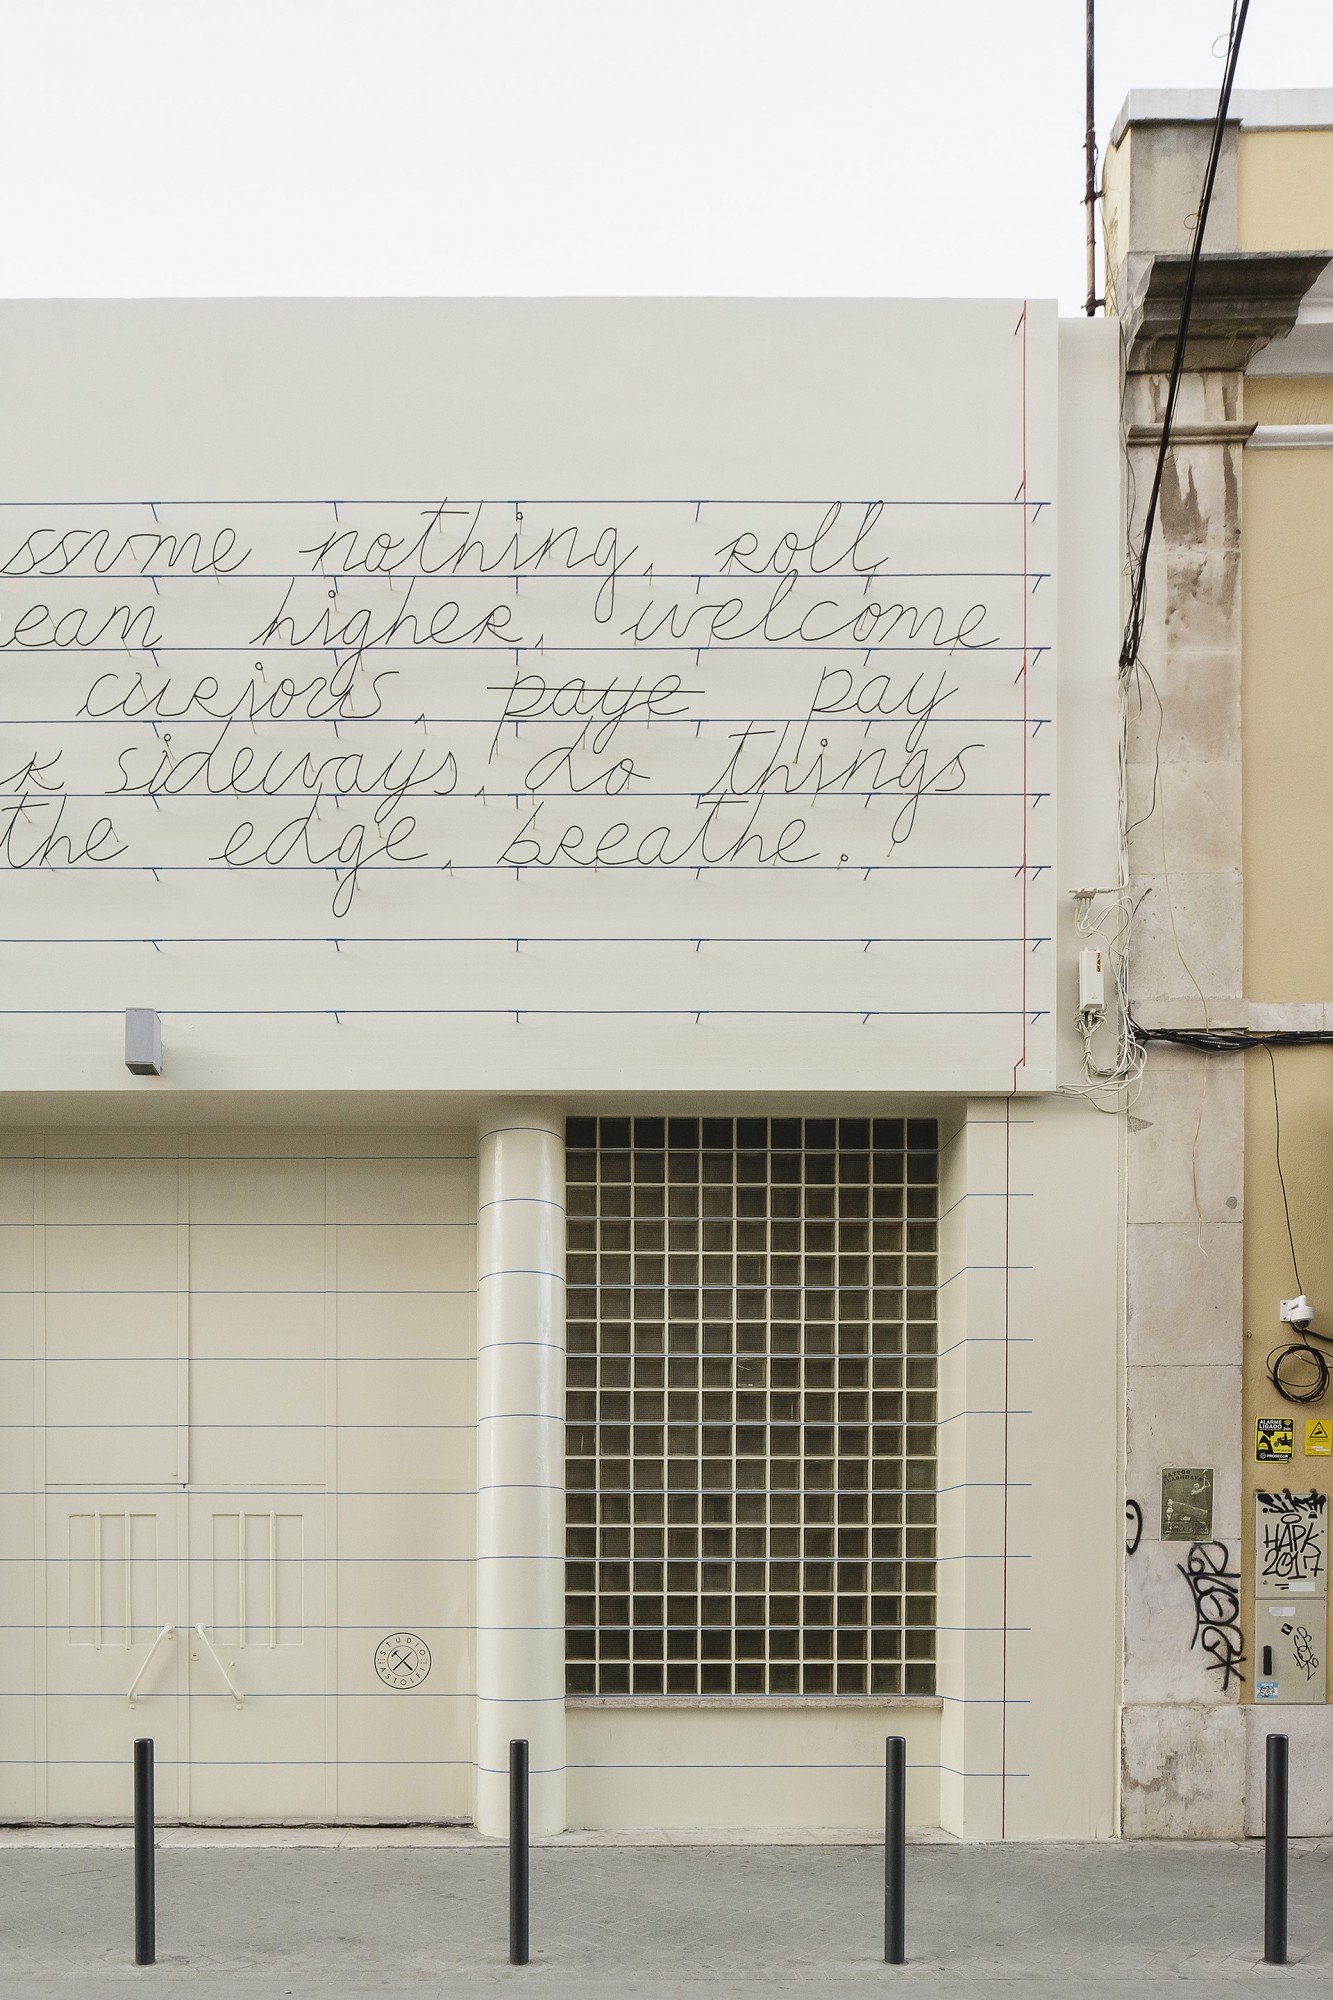 ssume nothing, roll
eam higher, welcome
curious, paye pay
k sideways, do things
the edge, breathe.
STUDIO
ASTOLFI
ALARME
LIGADO
PROSEGUR
HAPK
2017